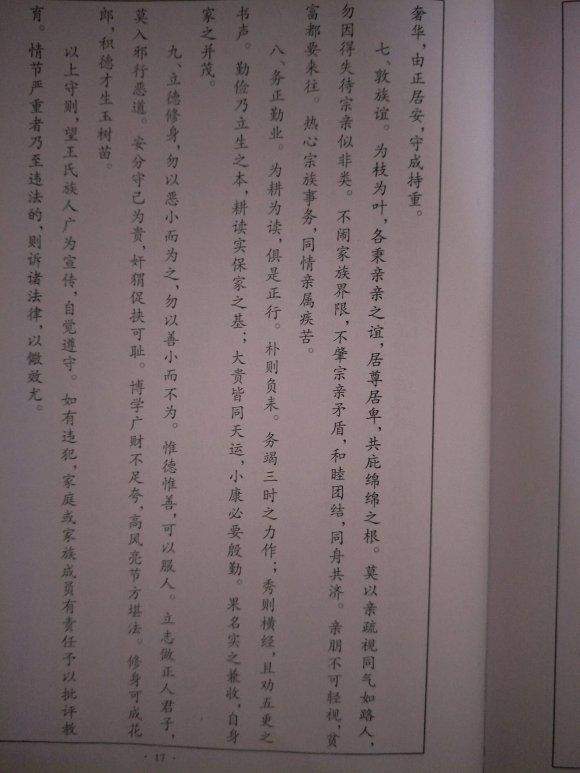 奢华，由正居安，守成持重。
七、敦族谊。为枝为叶，各秉亲亲之谊，居尊居卑，共庇绵绵之根。莫以亲疏视同气如路人，
勿因得失待宗亲似非类。不闹家族界限，不肇宗亲矛盾，和睦团结，同舟共济。亲朋不可轻视，贫
富都要来往。热心宗族事务，同情亲属疾苦。
八、务正勤业。为耕为读，俱是正行。朴则负耒。务竭三时之力作；秀则横经，且劝五更之
书声。勤俭乃立生之本，耕读实保家之基；大贵皆同天运，小康必要殷勤。果名实之兼收，自身
家之并茂。
九、立德修身，勿以恶小而为之，勿以善小而不为。惟德惟善，可以服人。立志做正人君子，
莫入邪行恶道。安分守己为贵，奸猾促扶可耻。博学广财不足夸，高风亮节方堪法。修身可成花
郎，积德才生玉树苗。
以上守则，望王氏族人广为宣传，自觉遵守。如有违犯，家庭或家族成员有责任予以批评教
育。情节严重者乃至违法的，则诉诸法律，以儆效尤。
·17·